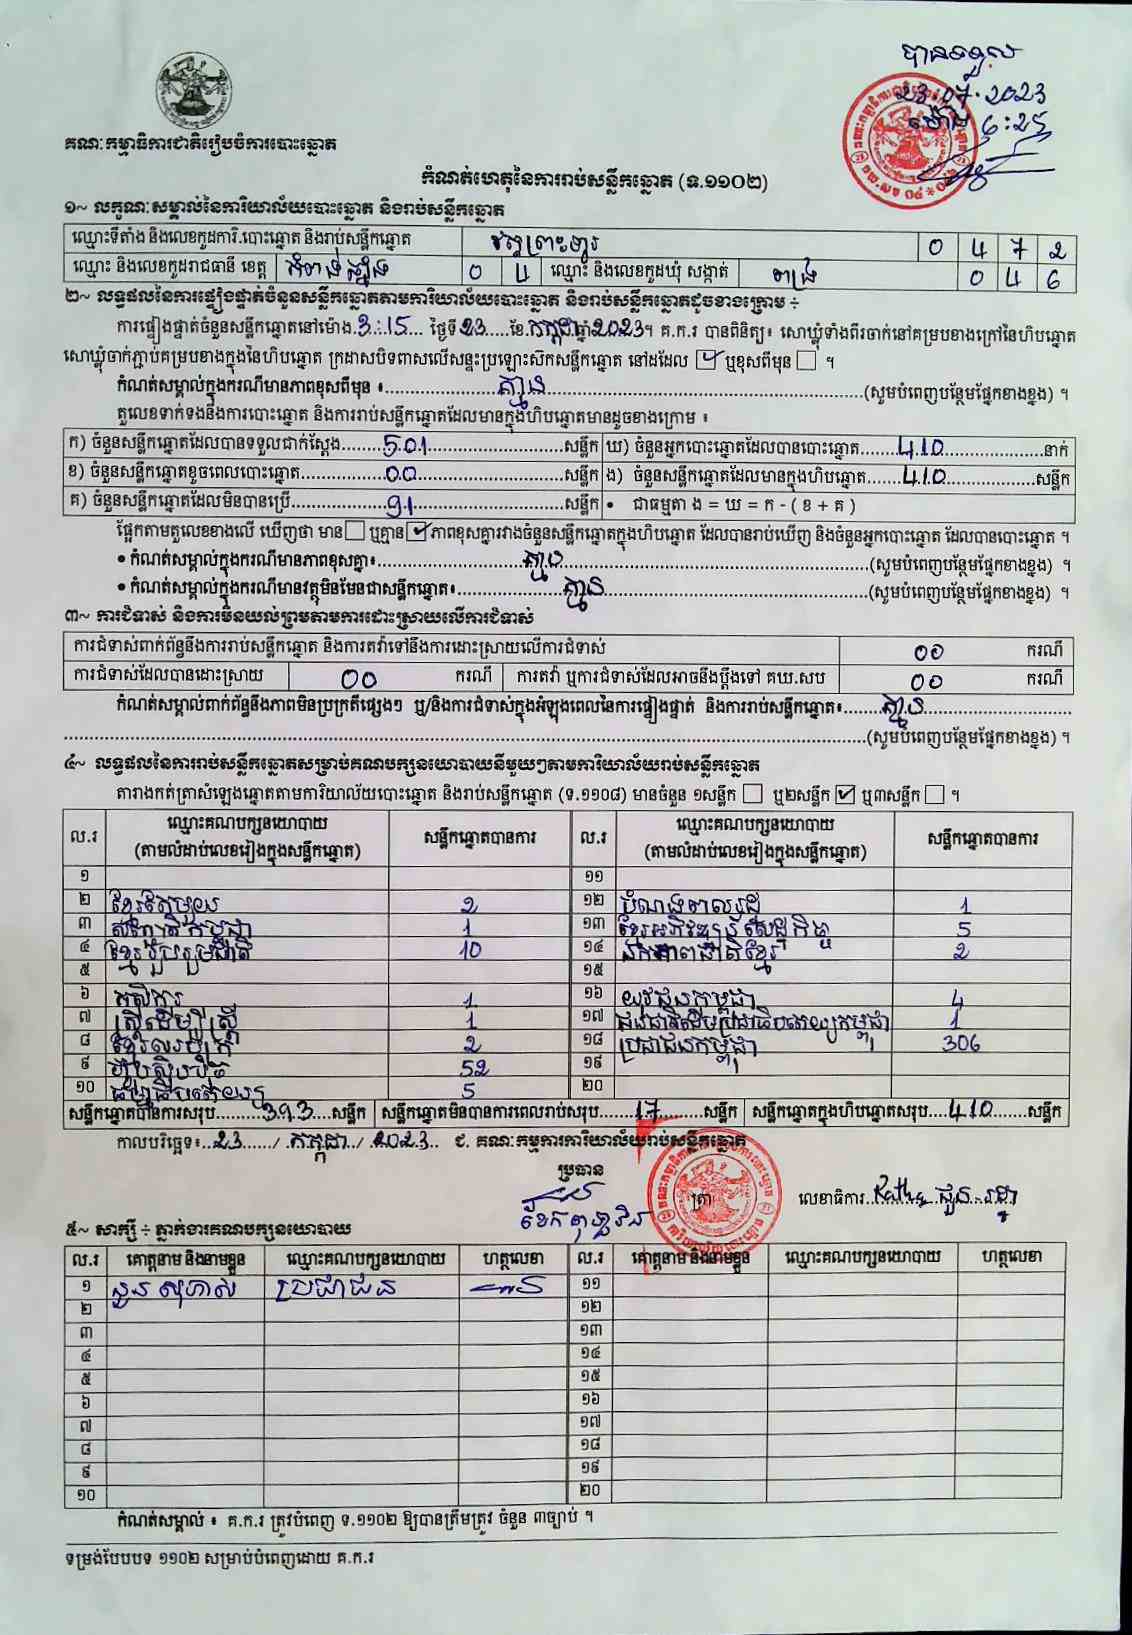 បានទទួល
23.07.2023
ម៉ោង 6:25
គណៈកម្មាធិការជាតិរៀបចំការបោះឆ្នោត
កំណត់ហេតុនៃការរាប់សន្លឹកឆ្នោត (ទ.១១០២)
១~ លក្ខណៈសម្គាល់នៃការិយាល័យបោះឆ្នោត និងរាប់សន្លឹកឆ្នោត
ឈ្មោះទីតាំង និងលេខកូដការិ.បោះឆ្នោត និងរាប់សន្លឹកឆ្នោត 0 4 7 2
ឈ្មោះ និងលេខកូដរាជធានី ខេត្ត កំពង់ឆ្នាំង 0 4 ឈ្មោះ និងលេខកូដឃុំ សង្កាត់ 0 4 6
២~ លទ្ធផលនៃការផ្ទៀងផ្ទាត់ចំនួនសន្លឹកឆ្នោតតាមការិយាល័យបោះឆ្នោត និងរាប់សន្លឹកឆ្នោតដូចខាងក្រោម ÷
ការផ្ទៀងផ្ទាត់ចំនួនសន្លឹកឆ្នោតនៅម៉ោង 3:15 ថ្ងៃទី 23 ខែ កក្កដា ឆ្នាំ 2023។ គ.ក.រ បានពិនិត្យ៖ សោឃ្លុំទាំងពីរចាក់នៅគម្របខាងក្រៅនៃហិបឆ្នោត
សោឃ្លុំចាក់ភ្ជាប់គម្របខាងក្នុងនៃហិបឆ្នោត ក្រដាសបិទពាសលើសន្ទះប្រឡោះស៊កសន្លឹកឆ្នោត នៅដដែល ☑ ឬខុសពីមុន ☐ ។
កំណត់សម្គាល់ក្នុងករណីមានភាពខុសពីមុន ៖ គ្មាន (សូមបំពេញបន្ថែមផ្នែកខាងខ្នង) ។
តួលេខទាក់ទងនឹងការបោះឆ្នោត និងការរាប់សន្លឹកឆ្នោតដែលមានក្នុងហិបឆ្នោតមានដូចខាងក្រោម ៖
ក) ចំនួនសន្លឹកឆ្នោតដែលបានទទួលជាក់ស្តែង 501 សន្លឹក ឃ) ចំនួនអ្នកបោះឆ្នោតដែលបានបោះឆ្នោត 410 នាក់
ខ) ចំនួនសន្លឹកឆ្នោតខូចពេលបោះឆ្នោត 00 សន្លឹក ង) ចំនួនសន្លឹកឆ្នោតដែលមានក្នុងហិបឆ្នោត 410 សន្លឹក
គ) ចំនួនសន្លឹកឆ្នោតដែលមិនបានប្រើ 91 សន្លឹក • ជាធម្មតា ង = ឃ = ក - ( ខ + គ )
ផ្អែកតាមតួលេខខាងលើ ឃើញថា មាន ☐ ឬគ្មាន ☑ ភាពខុសគ្នារវាងចំនួនសន្លឹកឆ្នោតក្នុងហិបឆ្នោត ដែលបានរាប់ឃើញ និងចំនួនអ្នកបោះឆ្នោត ដែលបានបោះឆ្នោត ។
• កំណត់សម្គាល់ក្នុងករណីមានភាពខុសគ្នា៖ គ្មាន (សូមបំពេញបន្ថែមផ្នែកខាងខ្នង) ។
• កំណត់សម្គាល់ក្នុងករណីមានវត្ថុមិនមែនជាសន្លឹកឆ្នោត៖ គ្មាន (សូមបំពេញបន្ថែមផ្នែកខាងខ្នង) ។
៣~ ការជំទាស់ និងការមិនយល់ព្រមតាមការដោះស្រាយលើការជំទាស់
ការជំទាស់ពាក់ព័ន្ធនឹងការរាប់សន្លឹកឆ្នោត និងការតវ៉ាទៅនឹងការដោះស្រាយលើការជំទាស់ 00 ករណី
ការជំទាស់ដែលបានដោះស្រាយ 00 ករណី ការតវ៉ា ឬការជំទាស់ដែលអាចនឹងប្តឹងទៅ គឃ.សប 00 ករណី
កំណត់សម្គាល់ពាក់ព័ន្ធនឹងភាពមិនប្រក្រតីផ្សេងៗ ឬ/និងការជំទាស់ក្នុងអំឡុងពេលនៃការផ្ទៀងផ្ទាត់ និងការរាប់សន្លឹកឆ្នោត៖ គ្មាន
(សូមបំពេញបន្ថែមផ្នែកខាងខ្នង) ។
៤~ លទ្ធផលនៃការរាប់សន្លឹកឆ្នោតសម្រាប់គណបក្សនយោបាយនីមួយៗតាមការិយាល័យរាប់សន្លឹកឆ្នោត
តារាងកត់ត្រាសំឡេងឆ្នោតតាមការិយាល័យបោះឆ្នោត និងរាប់សន្លឹកឆ្នោត (ទ.១១០៨) មានចំនួន ១សន្លឹក ☐ ឬ២សន្លឹក ☑ ឬ៣សន្លឹក ☐ ។
ល.រ ឈ្មោះគណបក្សនយោបាយ (តាមលំដាប់លេខរៀងក្នុងសន្លឹកឆ្នោត) សន្លឹកឆ្នោតបានការ ល.រ ឈ្មោះគណបក្សនយោបាយ (តាមលំដាប់លេខរៀងក្នុងសន្លឹកឆ្នោត) សន្លឹកឆ្នោតបានការ
១ ១១
២ ខ្មែរតែមួយ 2 ១២ 1
៣ សញ្ជាតិកម្ពុជា 1 ១៣ ខ្មែរអភិវឌ្ឍន៍សេដ្ឋកិច្ច 5
៤ ខ្មែររួបរួមជាតិ 10 ១៤ ឯកភាពជាតិខ្មែរ 2
៥ ១៥
៦ កសិករ 1 ១៦ យុវជនកម្ពុជា 4
៧ ស្ត្រីដើម្បីស្ត្រី 1 ១៧ ជនជាតិដើមប្រជាធិបតេយ្យកម្ពុជា 1
៨ 2 ១៨ ប្រជាជនកម្ពុជា 306
៩ ហ្វ៊ុនស៊ិនប៉ិច 52 ១៩
១០ ធម្មាធិបតេយ្យ 5 ២០
សន្លឹកឆ្នោតបានការសរុប 393 សន្លឹក សន្លឹកឆ្នោតមិនបានការពេលរាប់សរុប 17 សន្លឹក សន្លឹកឆ្នោតក្នុងហិបឆ្នោតសរុប 410 សន្លឹក
កាលបរិច្ឆេទ៖ 23 / កក្កដា / 2023 ជ. គណៈកម្មការការិយាល័យរាប់សន្លឹកឆ្នោត
ប្រធាន ត្រា លេខាធិការ
៥~ សាក្សី ÷ ភ្នាក់ងារគណបក្សនយោបាយ
ល.រ គោត្តនាម និងនាមខ្លួន ឈ្មោះគណបក្សនយោបាយ ហត្ថលេខា ល.រ គោត្តនាម និងនាមខ្លួន ឈ្មោះគណបក្សនយោបាយ ហត្ថលេខា
១ ប្រជាជន ១១
២ ១២
៣ ១៣
៤ ១៤
៥ ១៥
៦ ១៦
៧ ១៧
៨ ១៨
៩ ១៩
១០ ២០
កំណត់សម្គាល់ ៖ គ.ក.រ ត្រូវបំពេញ ទ.១១០២ ឱ្យបានត្រឹមត្រូវ ចំនួន ៣ច្បាប់ ។
ទម្រង់បែបបទ ១១០២ សម្រាប់បំពេញដោយ គ.ក.រ